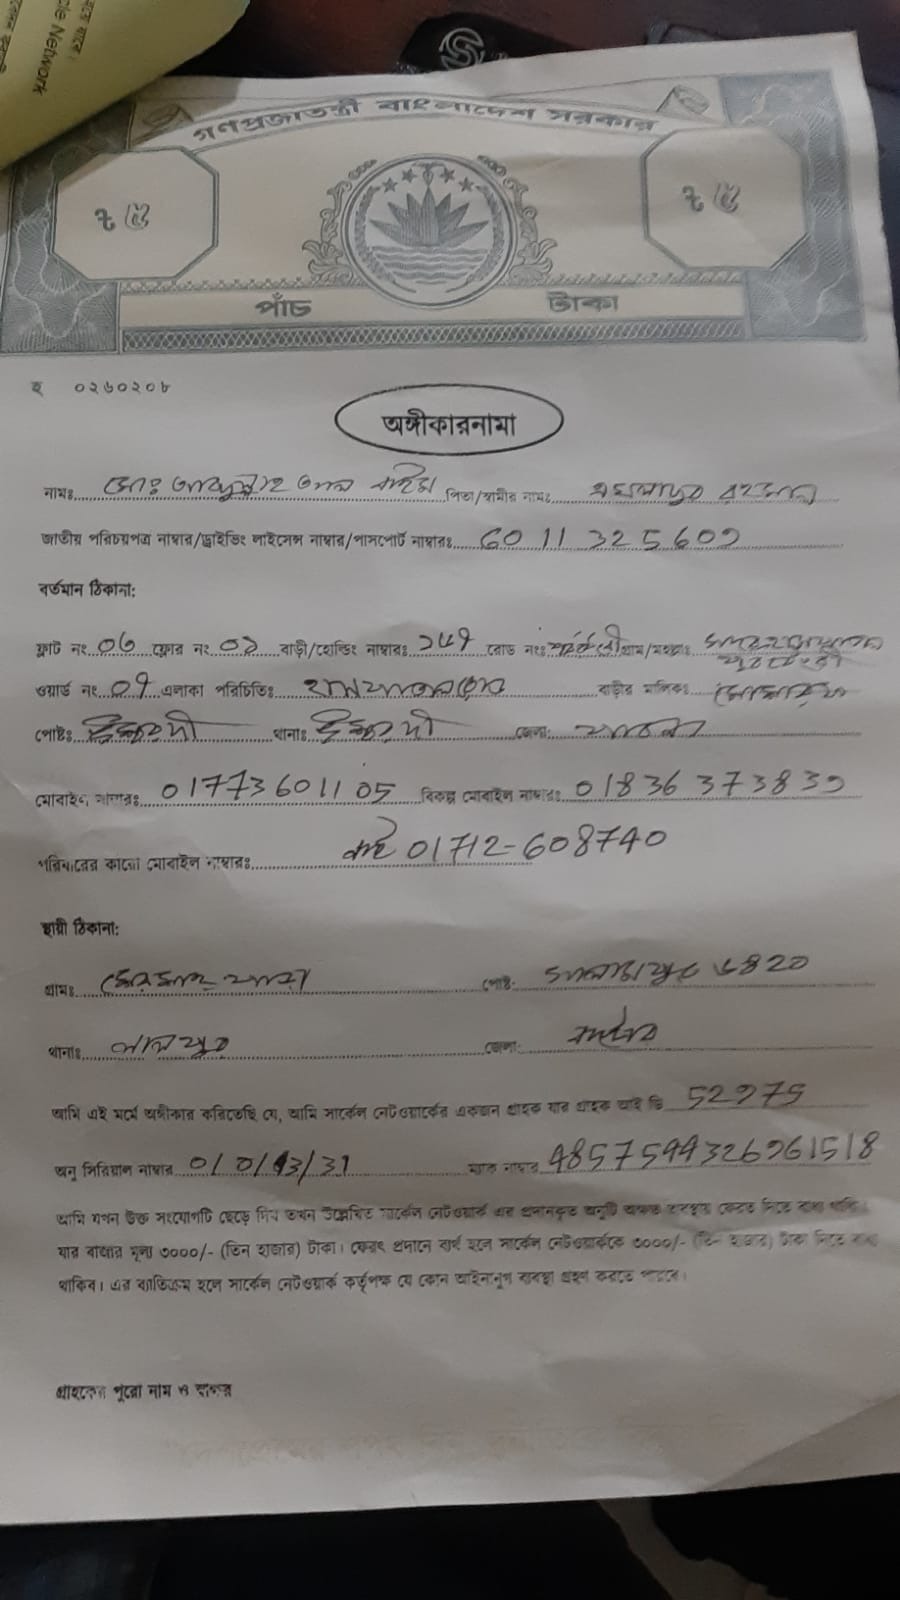 ple Network
গণপ্রজাতন্ত্রী বাংলাদেশ সরকার
৳ ৫ ৳ ৫
পাঁচ টাকা
হ ০২৬০২০৮
অঙ্গীকারনামা
নামঃ মোঃ আব্দুল্লাহ আল পিতা/স্বামীর নামঃ রহমান
জাতীয় পরিচয়পত্র নাম্বার/ড্রাইভিং লাইসেন্স নাম্বার/পাসপোর্ট নাম্বারঃ 60 11 325 609
বর্তমান ঠিকানা:
ফ্লাট নং ফ্লোর নং বাড়ী/হোল্ডিং নাম্বারঃ রোড নংঃ গ্রাম/মহল্লাঃ
ওয়ার্ড নং এলাকা পরিচিতিঃ হাসপাতাল রোড বাড়ীর মালিকঃ
পোষ্টঃ ঈশ্বরদী থানাঃ ঈশ্বরদী জেলা: পাবনা
মোবাইল নাম্বারঃ 01773601105 বিকল্প মোবাইল নাম্বারঃ 01836 373839
পরিবারের কারো মোবাইল নাম্বারঃ ভাই 01712-608740
স্থায়ী ঠিকানা:
গ্রামঃ পোষ্ট:
থানাঃ লালপুর জেলা: নাটোর
আমি এই মর্মে অঙ্গীকার করিতেছি যে, আমি সার্কেল নেটওয়ার্কের একজন গ্রাহক যার গ্রাহক আই ডি 52975
অনু সিরিয়াল নাম্বার 0/0/13/31 ম্যাক নাম্বার 4857544326961518
আমি যখন উক্ত সংযোগটি ছেড়ে দিব তখন উল্লেখিত সার্কেল নেটওয়ার্ক এর প্রদানকৃত অনুটি অক্ষত অবস্থায় ফেরত দিতে বাধ্য থাকিব।
যার বাজার মূল্য ৩০০০/- (তিন হাজার) টাকা। ফেরৎ প্রদানে ব্যর্থ হলে সার্কেল নেটওয়ার্ককে ৩০০০/- (তিন হাজার) টাকা দিতে বাধ্য
থাকিব। এর ব্যতিক্রম হলে সার্কেল নেটওয়ার্ক কর্তৃপক্ষ যে কোন আইনানুগ ব্যবস্থা গ্রহণ করতে পারবে।
গ্রাহকের পুরো নাম ও স্বাক্ষর